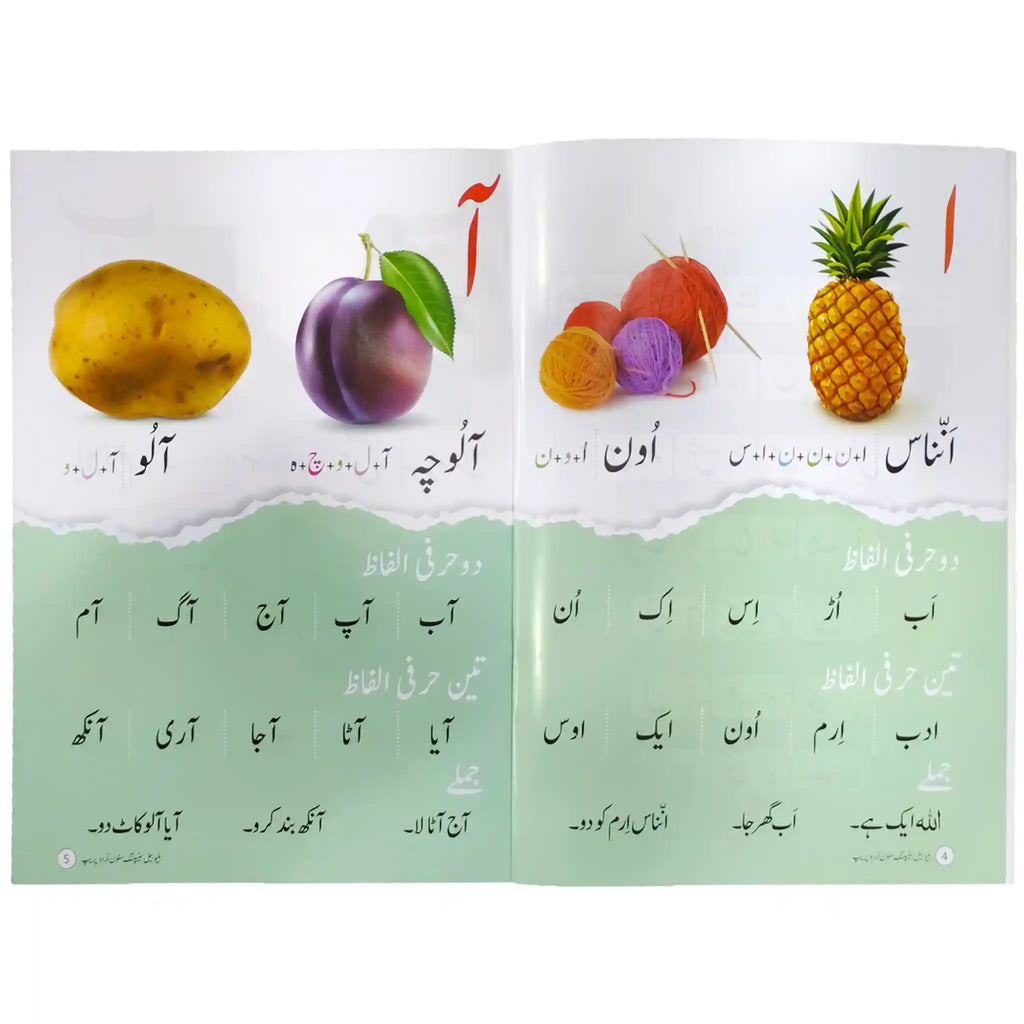 ا
اَنّناس ا+ن+ن+ن+ا+س اُون اُ+و+ن
دو حرفی الفاظ
اَب اُڑ اِس اِک اُن
تین حرفی الفاظ
ادب اِرم اُون ایک اوس
جملے
اللہ ایک ہے۔ اَب گھر جا۔ انّناس اِرم کو دو۔
4
آ
آلُوچہ آ+ل+و+چ+ہ آلُو آ+ل+و
دو حرفی الفاظ
آب آپ آج آگ آم
تین حرفی الفاظ
آیا آٹا آجا آری آنکھ
جملے
آج آٹا لا۔ آنکھ بند کرو۔ آیا آلو کاٹ دو۔
5